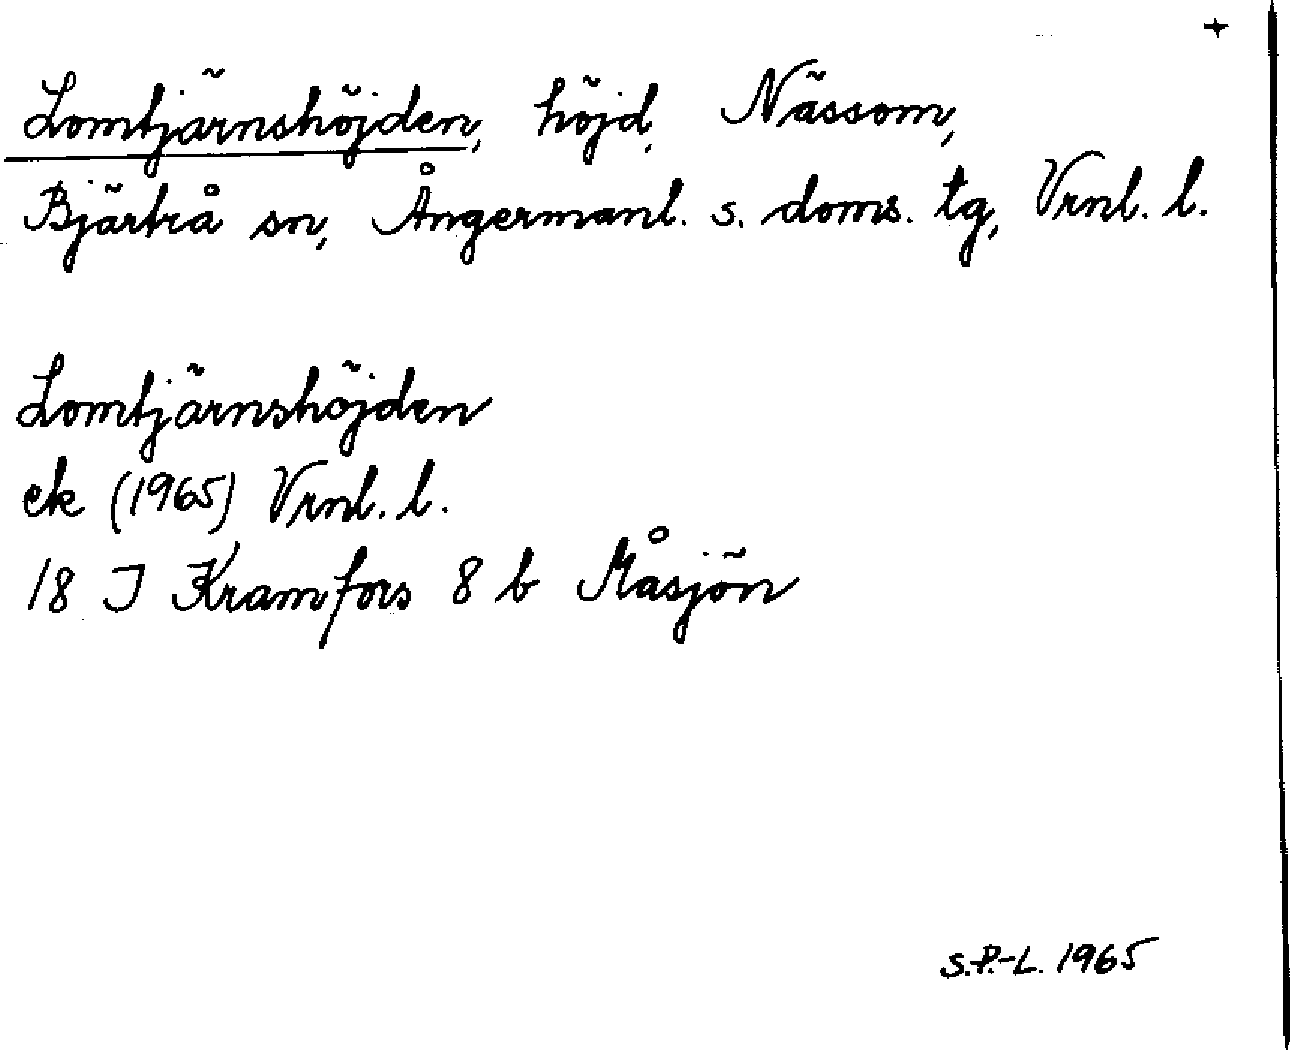 +
Lomtjärnshöjden, höjd, Nässom,
Bjärtrå sn, Ångermanl. s. doms. tg, Vrnl. l.
Lomtjärnshöjden
ek (1965) Vrnl. l.
18 J Kramfors 8 b Måsjön
S.P.-L. 1965